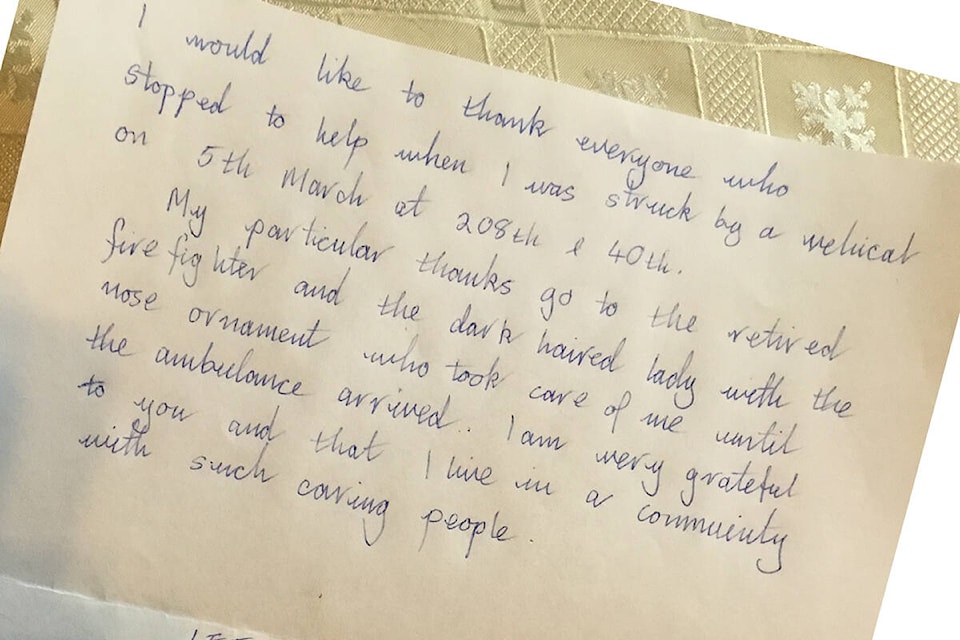 I would like to thank everyone who
stopped to help when I was struck by a vehical
on 5th March at 208th & 40th.
My particular thanks go to the retired
firefighter and the dark haired lady with the
nose ornament who took care of me until
the ambulance arrived.. I am very grateful
to you and that I live in a community
with such caring people.